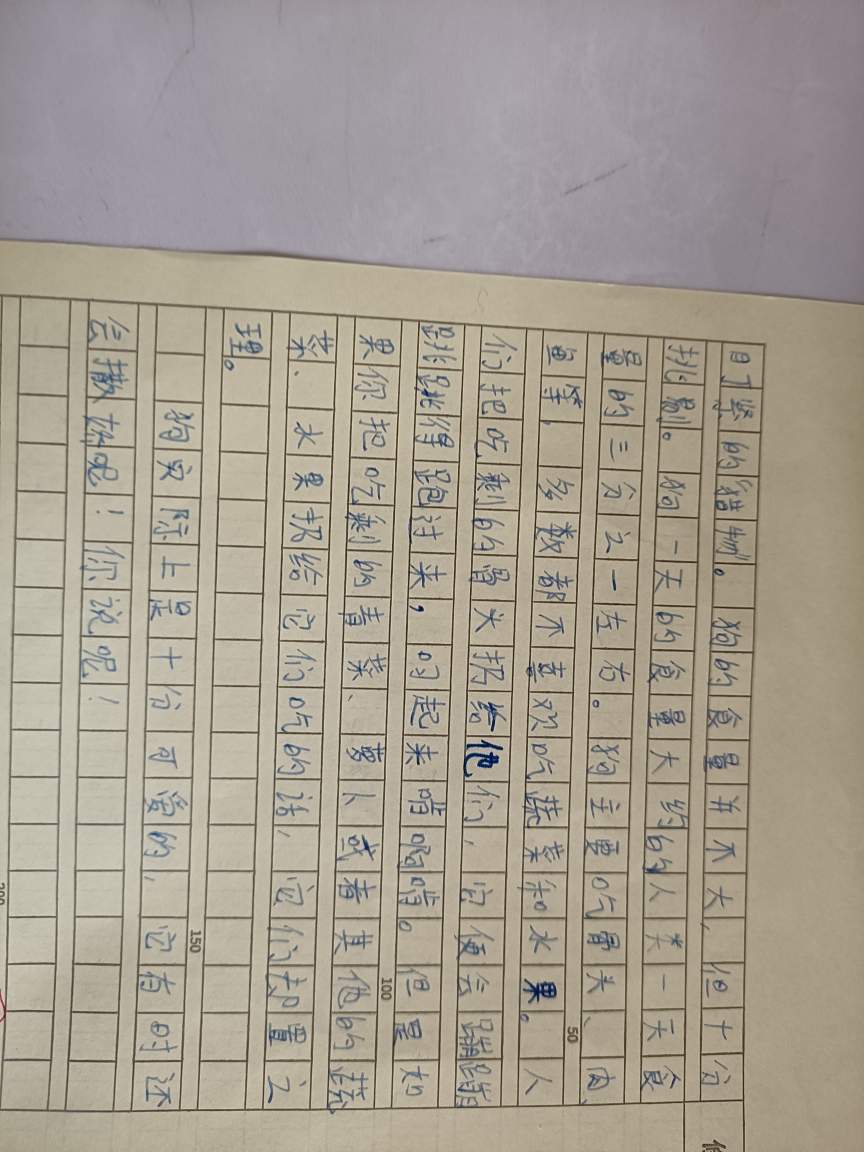 盯紧的猎物。狗的食量并不大,但十分
挑剔。狗一天的食量大约的人类一天食
量的三分之一左右。狗主要吃骨头、肉、
鱼等,多数都不喜欢吃蔬菜和水果。人
们把吃剩的骨头扔给他们,它便会蹦蹦
跳跳得跑过来,叼起来啃啊啃。但是如
果你把吃剩的青菜、萝卜或者其他的蔬
菜、水果扔给它们吃的话,它们却置之
理。
狗实际上是十分可爱的,它有时还
会撒娇呢!你说呢!
50
100
150
200